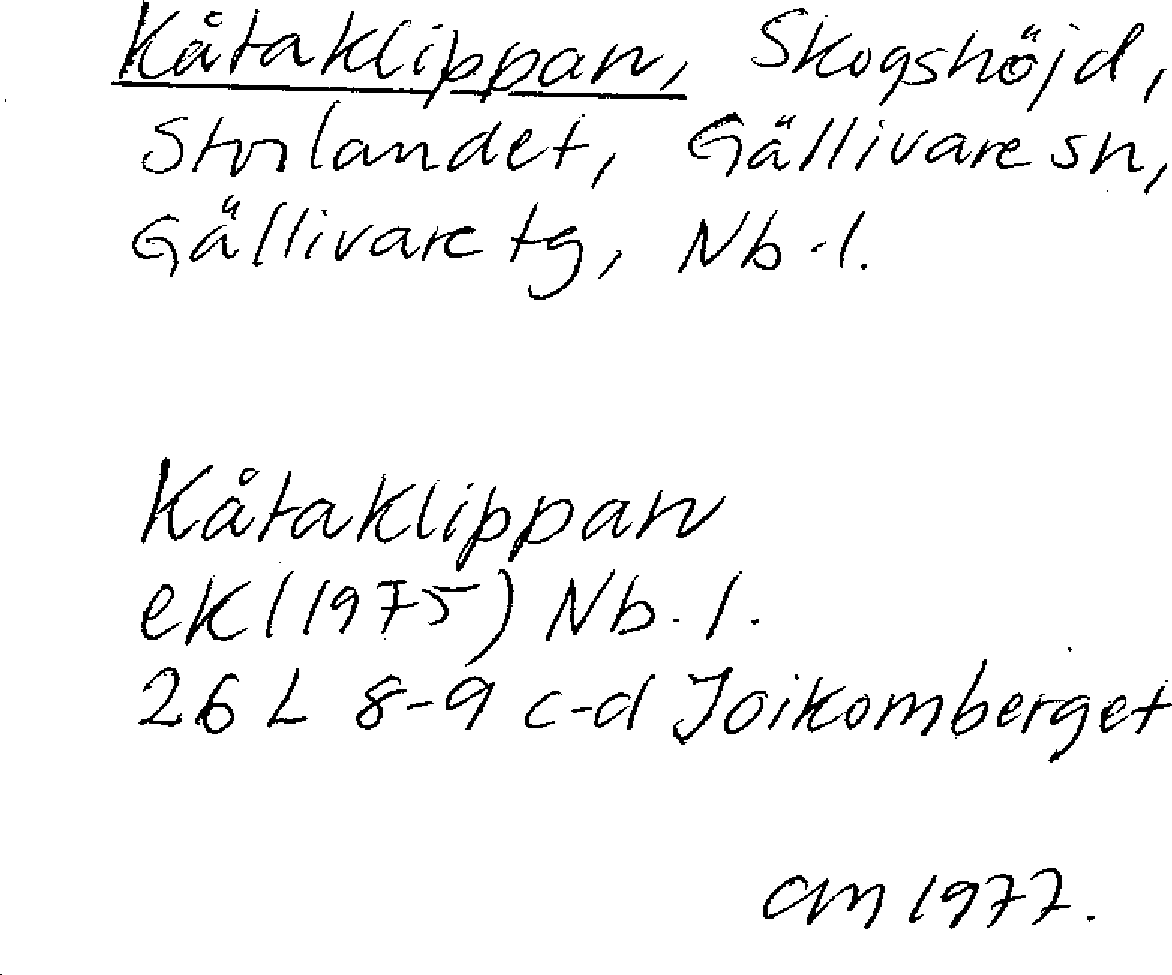 Kåtaklippan, Skogshöjd,
Storlandet, Gällivare sn,
Gällivare tg, Nb.l.
Kåtaklippan
ek (1975) Nb.l.
26 L 8-9 c-d Joikomberget
CM 1977.